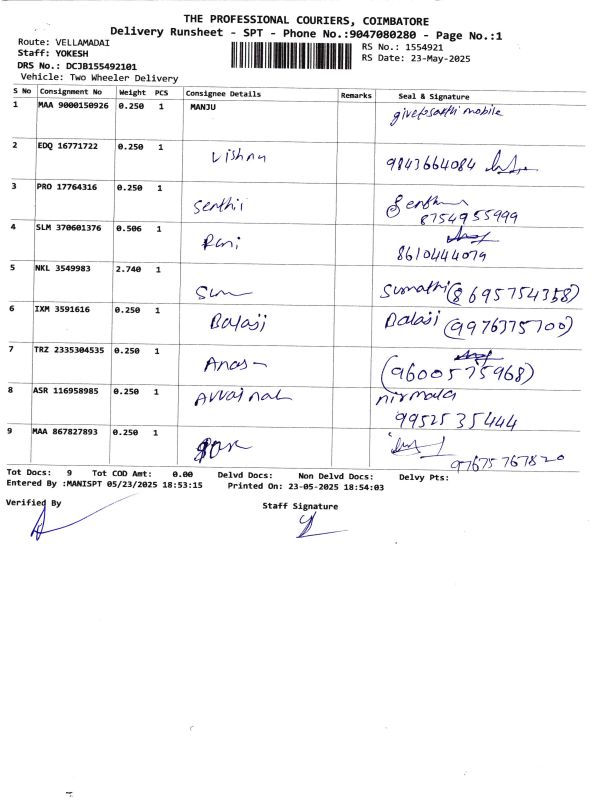 THE PROFESSIONAL COURIERS, COIMBATORE
Delivery Runsheet - SPT - Phone No.:9047080280 - Page No.:1
Route: VELLAMADAI
RS No.: 1554921
Staff: YOKESH
RS Date: 23-May-2025
DRS No.: DCJB155492101
Vehicle: Two Wheeler Delivery
S No Consignment No Weight PCS Consignee Details Remarks Seal & Signature
1 MAA 9000150926 0.250 1 MANJU mobile
2 EDQ 16771722 0.250 1 Vishnu 9843664084
3 PRO 17764316 0.250 1 Senthil
8754955999
4 SLM 370601376 0.506 1
8610444079
5 NKL 3549983 2.740 1 Sumathi (8695754358)
6 IXM 3591616 0.250 1 Balaji Balaji (9976375700)
7 TRZ 2335304535 0.250 1 (9600575968)
8 ASR 116958985 0.250 1 nirmala
9952535444
9 MAA 867827893 0.250 1
Tot Docs: 9 Tot COD Amt: 0.00 Delvd Docs: Non Delvd Docs: Delvy Pts:
Entered By :MANISPT 05/23/2025 18:53:15 Printed On: 23-05-2025 18:54:03
Verified By Staff Signature